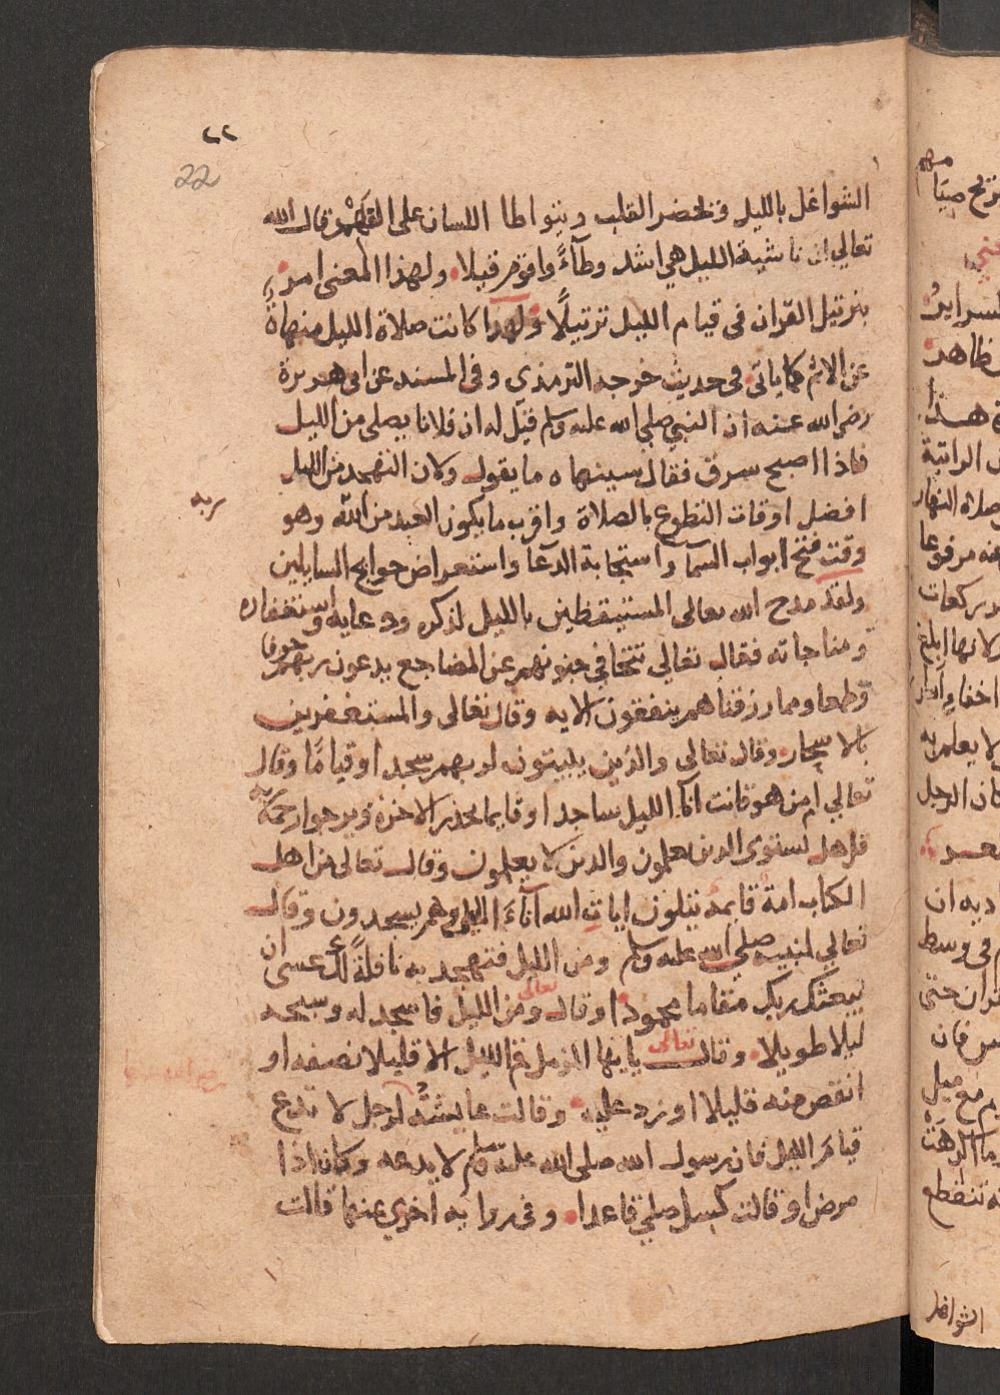 ٢٢
22
الشواغل بالليل ويحضر القلب ويتواطا اللسان على الفهم وقال الله
تعالي ان ناشية الليل هي اشد وطآءً واقوم قيلا ولهذا المعنى امر
بترتيل القران في قيام الليل ترتيلًا ولهذا كانت صلاة الليل منهاةً
عن الاثم كما ياتي في حديث خرجه الترمذي وفي المسند عن ابي هريرة
رضي الله عنه ان النبي صلي الله عليه وسلم قيل له ان فلانا يصلى من الليل
فاذا اصبح سرق فقال سينهاه ما يقول وكان التهجد من الليل
افضل اوقات التطوع بالصلاة واقرب ما يكون العبد من الله وهو
ربه
وقت فتح ابواب السمآ واستجابة الدعآ واستعراض حوايج السايلين
ولقد مدح الله تعالى المستيقظين بالليل لذكره ودعايه واستغفاره
ومناجاته فقال تعالي تتجافي جنوبهم عن المضاجع يدعون ربهم خوفا
وطمعا ومما رزقناهم ينفقون الايه وقال تعالى والمستغفرين
بالاسحار وقال تعالى والذين يبيتون لربهم سجدا وقيامًا وقال
تعالي ام من هو قانت آنآ الليل ساجدا وقايما يحذر الاخرة ويرجوا رحمة ربه
قل هل يستوى الذين يعلمون والذين لا يعلمون وقال تعالى من اهل
الكتاب امة قايمة يتلون ايات الله آنآءَ الليل وهم يسجدون وقال
تعالي لنبيه صلي الله عليه وسلم ومن الليل فتهجد به نافلةً لك عسى ان
يبعثك ربك مقاما محمودا وقال تعالى ومن الليل فاسجد له وسبحه
ليلا طويلا وقال تعالى يايها المزمل قم الليل الا قليلا نصفه او
انقص منه قليلا او زد عليه وقالت عايشة لرجل لا تدع
رضي الله عنها
قيام الليل فان رسول الله صلى الله عليه وسلم لا يدعه وكان اذا
مرض او قالت كسل صلي قاعدا وفي رواية اخرى عنها قالت